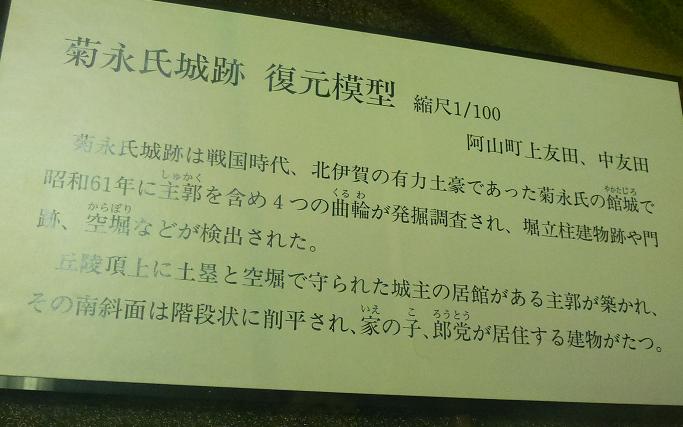 菊永氏城跡 復元模型 縮尺1/100
阿山町上友田、中友田
菊永氏城跡は戦国時代、北伊賀の有力土豪であった菊永氏の館城で
やかたじろ
昭和61年に主郭を含め4つの曲輪が発掘調査され、堀立柱建物跡や門
しゅかく くるわ
跡、空堀などが検出された。
からぼり
丘陵頂上に土塁と空堀で守られた城主の居館がある主郭が築かれ、
その南斜面は階段状に削平され、家の子、郎党が居住する建物がたつ。
いえ こ ろうとう